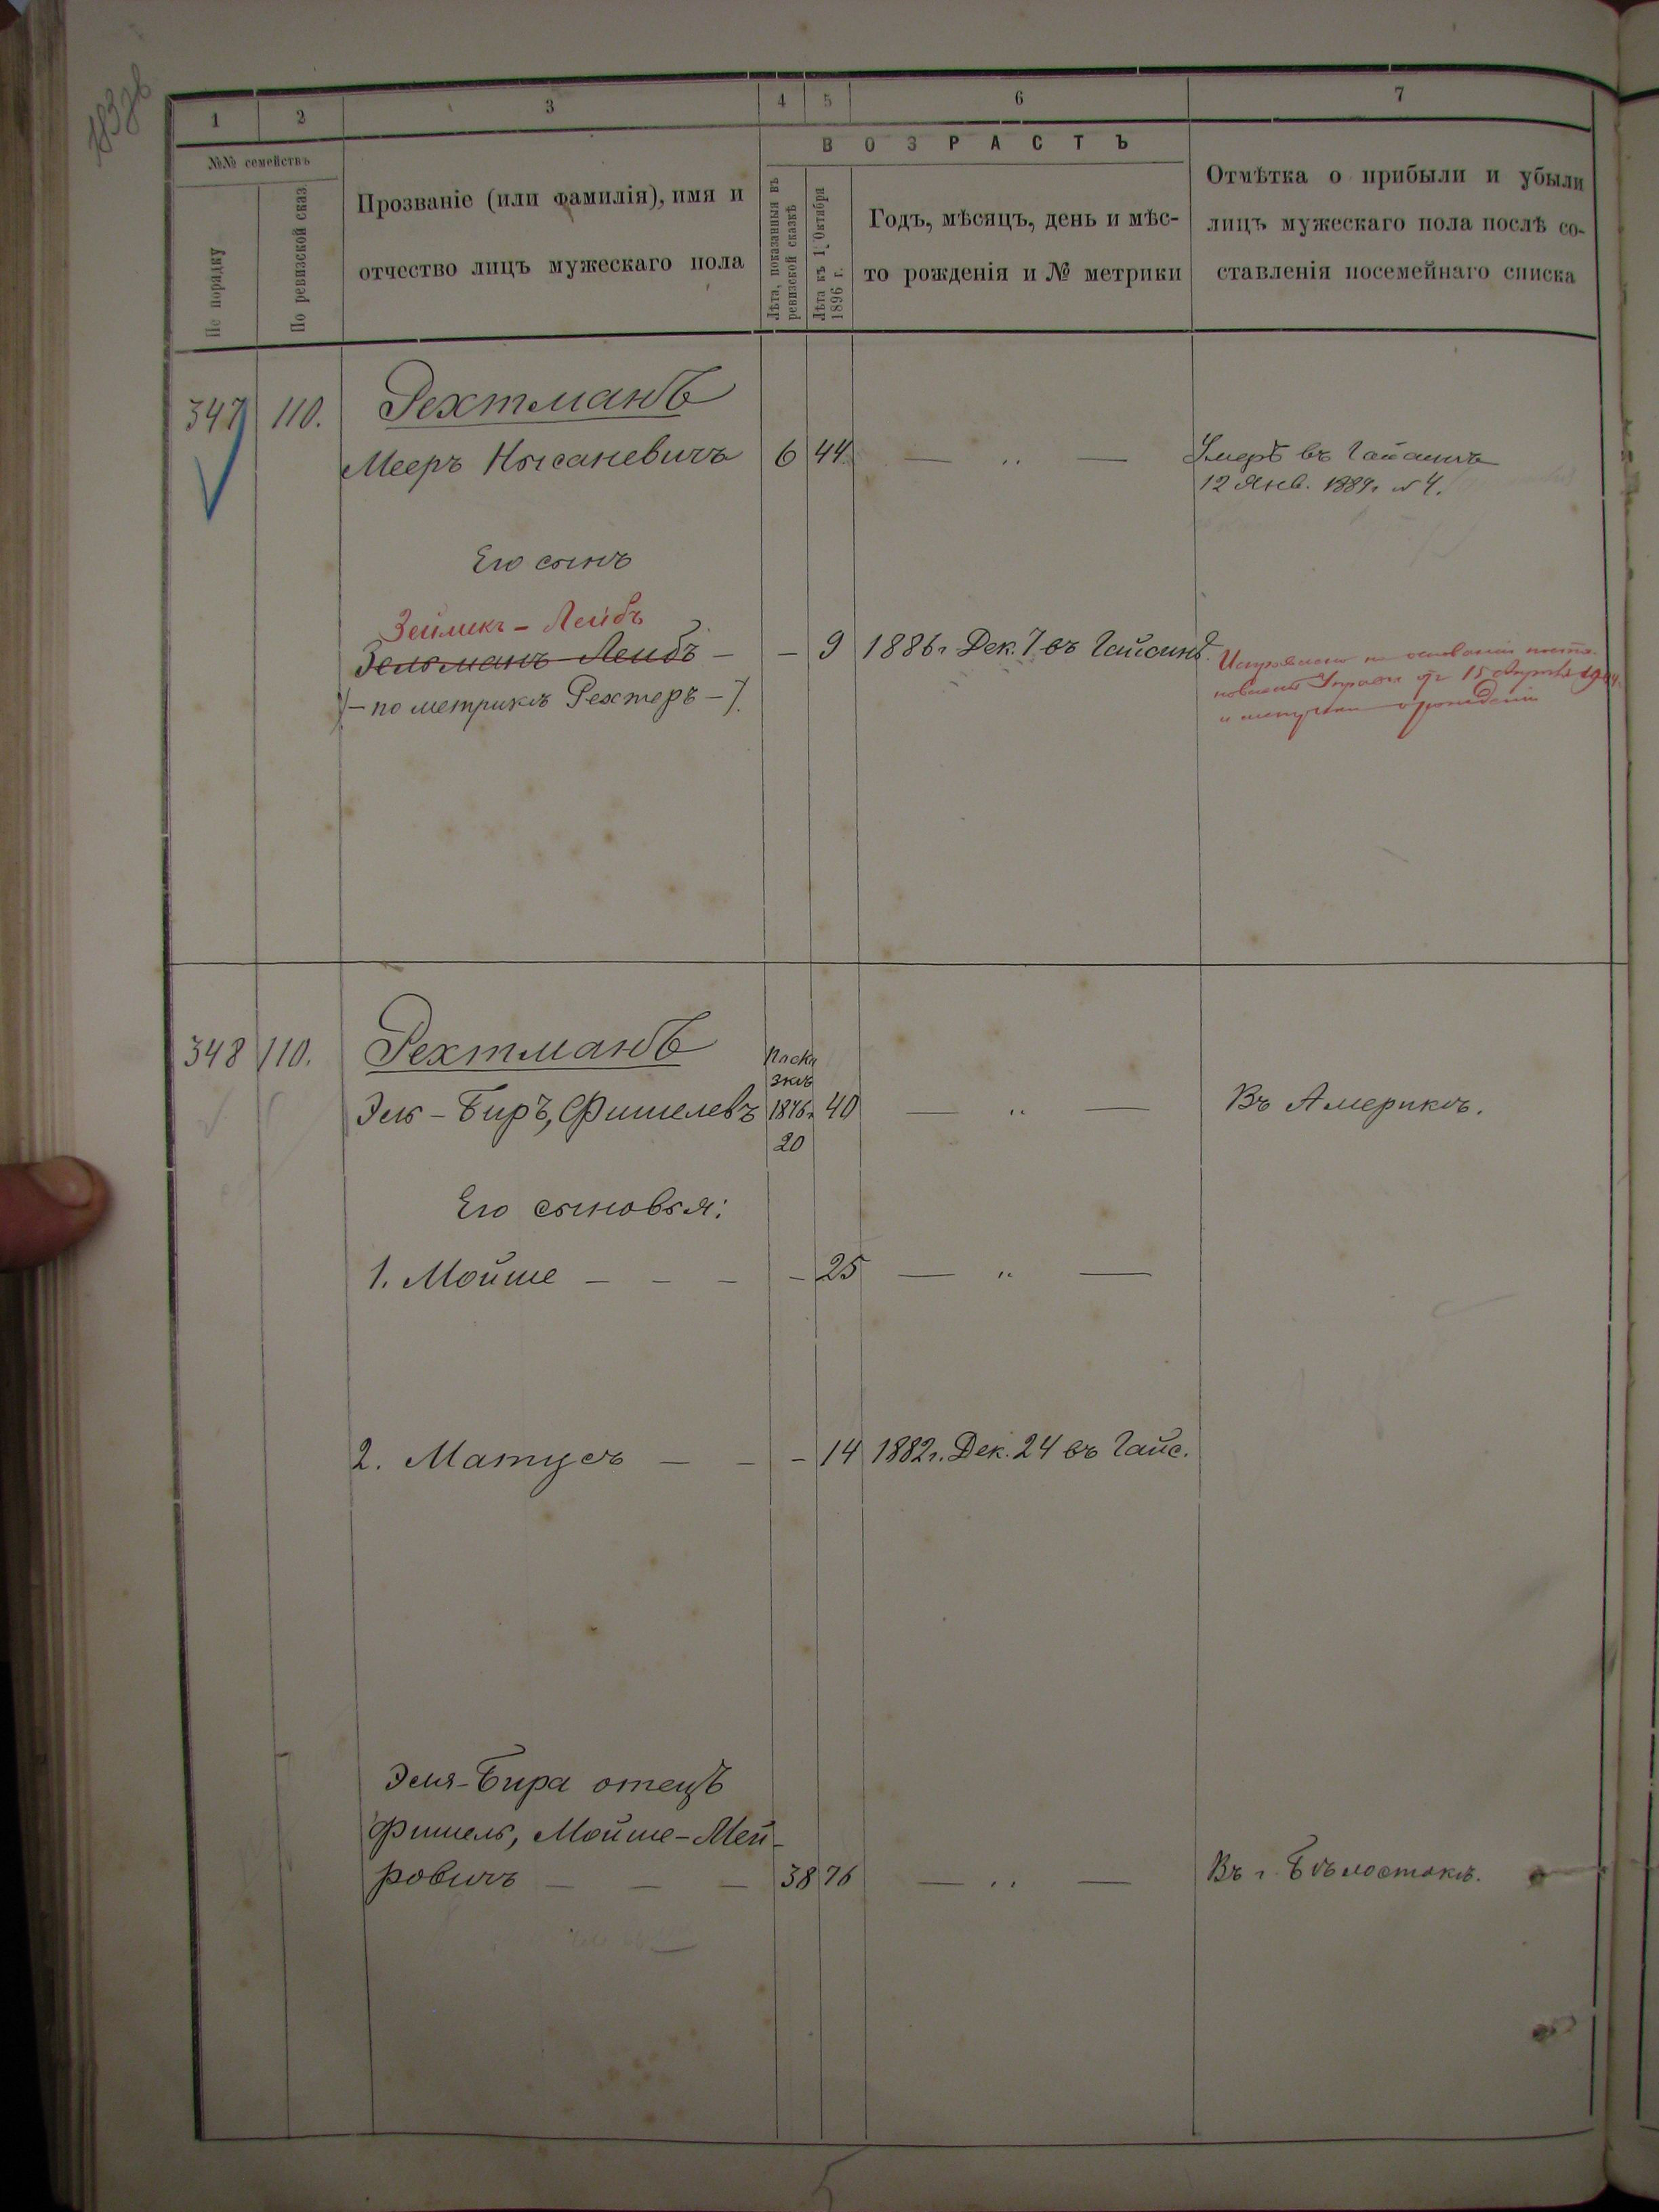 1 2 3 4 5 6 7
№№ семействъ
По порядку
По ревизской сказ.
Прозваніе (или фамилія), имя и
отчество лицъ мужескаго пола
ВОЗРАСТЪ
Лѣта, показанныя въ
ревизской сказкѣ
Лѣта къ 1 Октября
1896 г.
Годъ, мѣсяцъ, день и мѣс-
то рожденія и № метрики
Отмѣтка о прибыли и убыли
лицъ мужескаго пола послѣ со-
ставленія посемейнаго списка
347 110. Рехтманъ
Мееръ Нысаневичъ 6 44 — " — Умеръ въ Гайсинѣ
12 Янв. 1889г. №4.
Его сынъ
Зеймикъ - Лейбъ
Зельманъ-Лейбъ - - 9 1886г. Дек. 7 въ Гайсинѣ.
/- по метрикѣ Рехтеръ -/.
Исправлено на основаніи поста-
новленія Управы отъ 15 Апрѣля
и метрики о рожденіи
348 110. Рехтманъ
По ска
зкѣ
Эль - Биръ, Фишелевъ 1876г. 40 — " — Въ Америкѣ.
20
Его сыновья:
1. Мойше - - - - 25 — " —
2. Матусъ - - - 14 1882г. Дек. 24 въ Гайс.
Эля-Бира отецъ
Фишель, Мойше-Мей-
ровичъ - - - 38 76 — " — Въ г. Бѣлостокѣ.